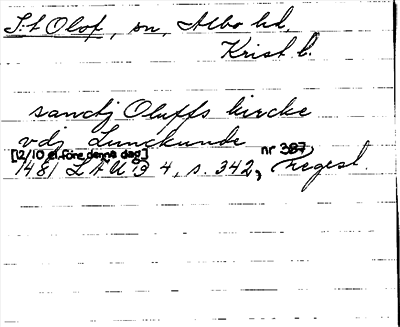 S:t Olof, sn, Albo hd,
Krist. l.
sanctj Oluffs kircke
vdj Lunckunde
[12/10 el. före denna dag]
1481 LAU 19 4, s. 342, nr 387, Regest.